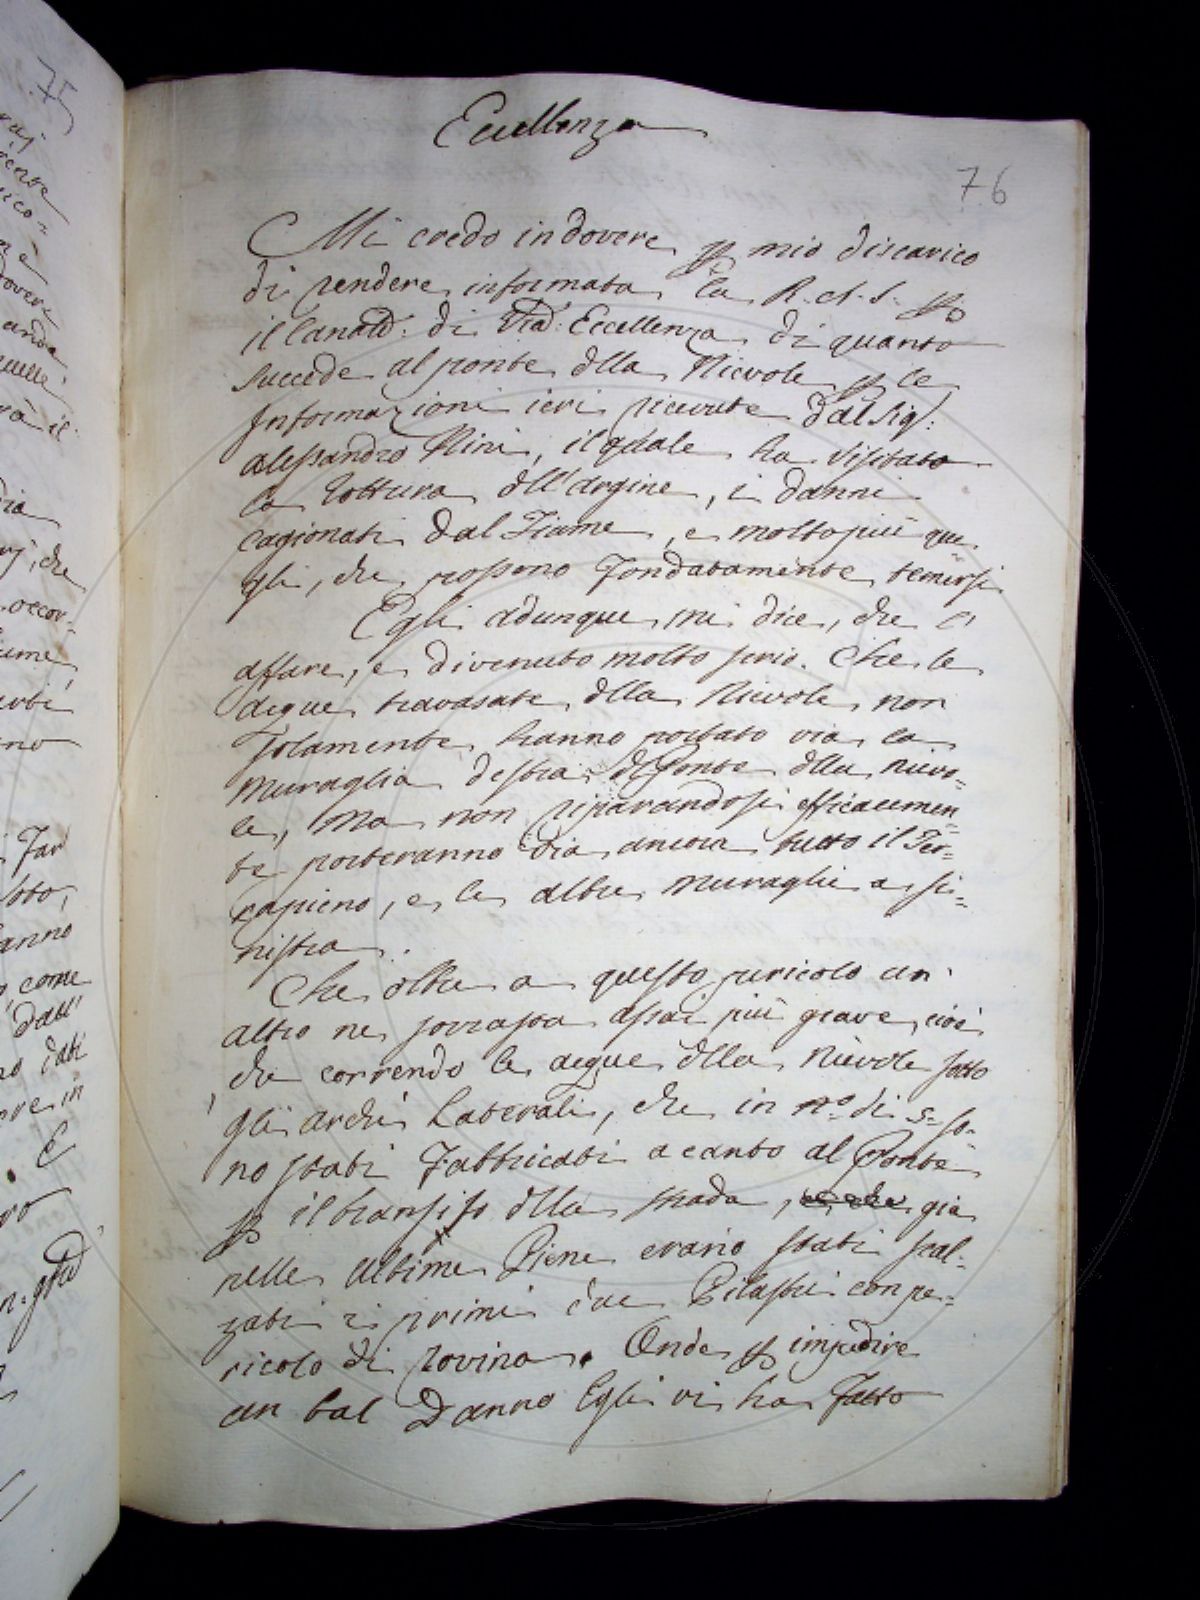 75
Eccellenza
76
Mi credo in dovere p mio discarico
di rendere informata la R. A. S. p
il Canale: di Vrã: Eccellenza di quanto
succede al ponte dlla Nievole p le
Informazioni ieri ricevute dal Sig:
Alessandro Nini, il quale ha visitato
la rottura dll'argine, i danni
cagionati dal Fiume, e molto più que=
gli, che possono fondatamente temersi
Egli adunque mi dice, che l'
affare, e divenuto molto serio. Che le
acque travasate dlla Nievole non
solamente hanno portato via la
Muraglia destra dl Ponte dlla Nievo=
le, Ma non riparandosi efficacemen=
te porteranno via ancora tutto il Ter=
rapieno, e le altre Muraglie a si=
nistra.
Che oltre a questo pericolo un'
altro ne sovrasta assai più grave, cioè
che correndo le acque dlla Nievole sotto
gli archi Laterali, che in no. di 5. so=
no stati Fabbricati acanto al Ponte
p il transito dlla strada, già
nelle ultime Piene erano stati scal=
zati i primi due Pilastri con pe=
ricolo di rovina. Onde p impedire
un tal Danno Egli vi ha fatto